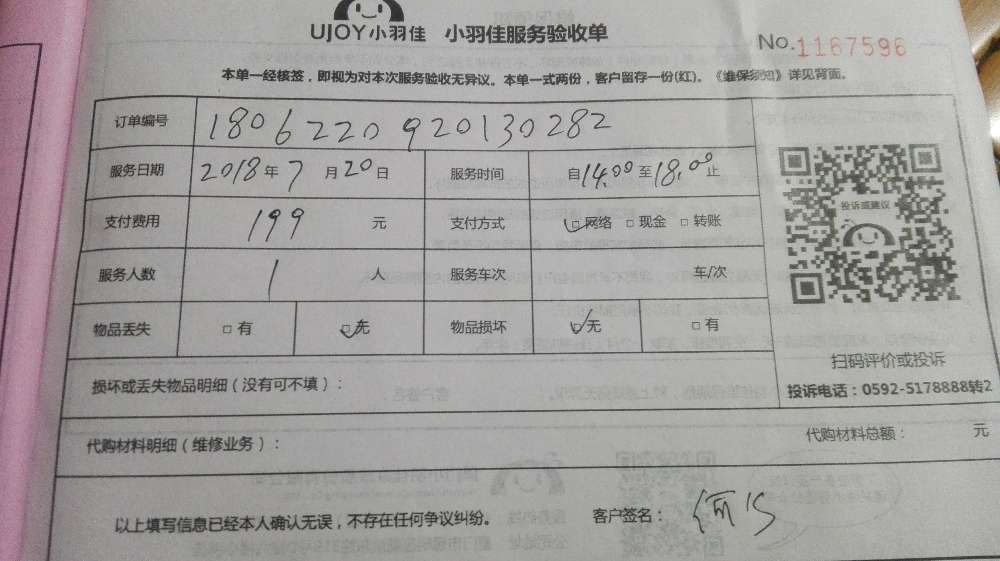 UJOY小羽佳 小羽佳服务验收单
No.1167596
本单一经核签，即视为对本次服务验收无异议。本单一式两份，客户留存一份(红)。《维保须知》详见背面。
订单编号 1806220920130282
服务日期 2018年7月20日 服务时间 自14.00至18.00止
支付费用 199 元 支付方式 □网络 □现金 □转账
服务人数 1 人 服务车次 车/次
物品丢失 □有 □无 物品损坏 □无 □有
投诉或建议
扫码评价或投诉
损坏或丢失物品明细（没有可不填）：
投诉电话：0592-5178888转2
代购材料明细（维修业务）： 代购材料总额： 元
以上填写信息已经本人确认无误，不存在任何争议纠纷。 客户签名：